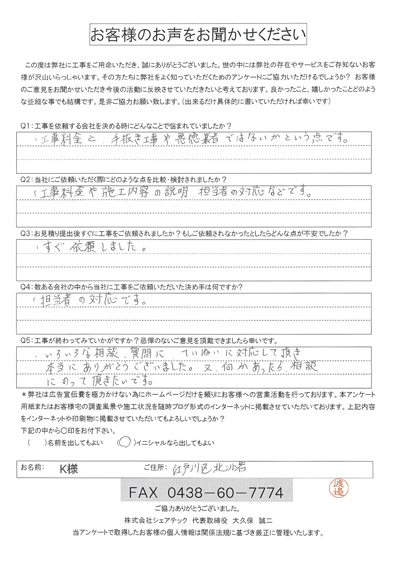 お客様のお声をお聞かせください
この度は弊社に工事をご用命いただき、誠にありがとうございました。世の中には弊社の存在やサービスをご存知ないお客
様が沢山いらっしゃいます。その方たちに弊社をよく知っていただくためのアンケートにご協力いただけるでしょうか？ お客様
のご意見をお聞かせいただき今後の活動に反映させていただきたいと考えております。良かったこと、嬉しかったことどのよう
な些細な事でも結構です。是非ご協力お願い致します。（出来るだけ具体的に書いていただければ幸いです）
Q1：工事を依頼する会社を決める時にどんなことで悩まれていましたか？
・工事料金と 手抜き工事や悪徳業者ではないかという点です。
Q2：当社にご依頼いただく際にどのような点を比較・検討されましたか？
・工事料金や施工内容の説明、担当者の対応などです。
Q3：お見積り提出後すぐに工事をご依頼されましたか？もしご依頼されなかったとしたらどんな点が不安でしたか？
・すぐ依頼しました。
Q4：数ある会社の中から当社に工事をご依頼いただいた決め手は何ですか？
・担当者の対応です。
Q5：工事が終わってみていかがですか？忌憚のないご意見を頂戴できましたら幸いです。
・いろいろな相談、質問に ていねいに対応して頂き
本当にありがとうございました。又、何かあったら相談
にのって頂きたいです。
＊弊社は広告宣伝費を極力かけない為にホームページだけを頼りにお客様への営業活動を行っております。本アンケート
用紙またはお客様宅の調査風景や施工状況を随時ブログ形式のインターネットに掲載させていただいております。上記内容
をインターネットや印刷物に掲載させていただいてもよろしいでしょうか？
下記の中から○印をお付下さい。
（ ）名前を出してもよい （○）イニシャルなら出してもよい
お名前： K様 ご住所： 江戸川区北小岩
FAX 0438-60-7774
渡邉
ご協力ありがとうございました。
株式会社シェアテック 代表取締役 大久保 誠二
当アンケートで取得したお客様の個人情報は関係法規に基づき厳正に管理いたします。